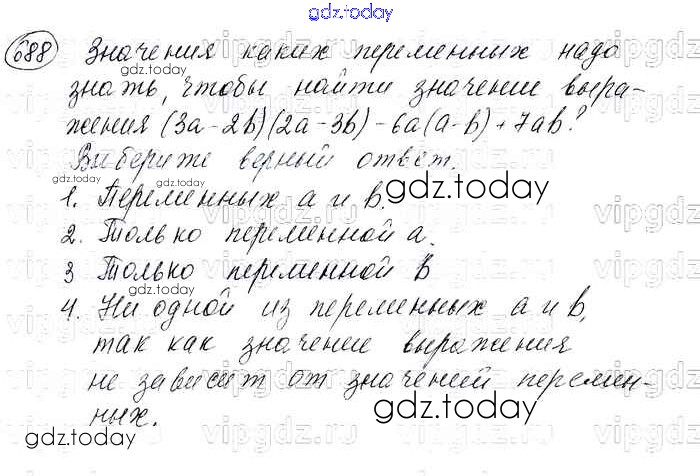 gdz.today
688 Значения каких переменных надо
gdz.today
знать, чтобы найти значение выра-
жения (3a-2b)(2a-3b)-6a(a-b)+7ab?
Выберите верный ответ.
gdz.today
1. Переменных a и b.
gdz.today
2. Только переменной a.
3 Только переменной b
gdz.today
4. Ни одной из переменных a и b,
так как значение выражения
не зависит от значений перемен-
ных.
gdz.today
gdz.today
vipgdz.ru